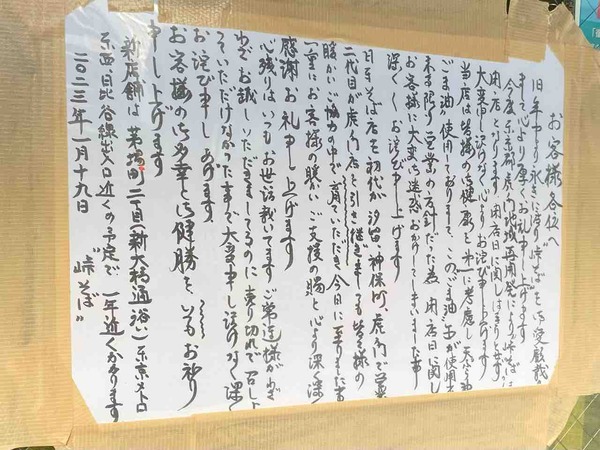 お客様各位へ
旧年中より永きに渡り"峠そば"をご愛顧載き
まして心より厚くお礼申し上げます。
今度東京都虎ノ門地域再開発により峠そばは
閉店となります 閉店日に関しましては
大変申し訳けなく心よりお詫び申し上げます
当店は皆様のご健康を第一に考慮し天ぷら油
ごま油 使用しておりまして、このごま油 缶が使用
限り 営業の方針だった為 閉店日に関し
お客様に大変ご迷惑おかけてしまいました事
深く お詫び申し上げます
峠そば店を初代が汐留、神保町、虎ノ門で営業
二代目が虎ノ門店を引き継ぎましても皆々様の
暖かいご協力の中で育ていただき今日に至りました事
一重にお客様の暖かいご支援の賜と心より深く深く
感謝、お礼申し上げます
心残りは いつもお世話載いてます ご常連様がわざ
わざお越しいただきましてるのに売り切れで召し上
ていただけなかった事で大変申し訳けなく深く
お詫び申し あげます。
お客様のご多幸とご健勝を いつもお祈り
申し上げます
新店舗は 茅場町二丁目(新大橋通り沿い)東京メトロ
東西日比谷線出入口近くの予定で 一年近くかかります
二〇二三年一月十九日 "峠そば"